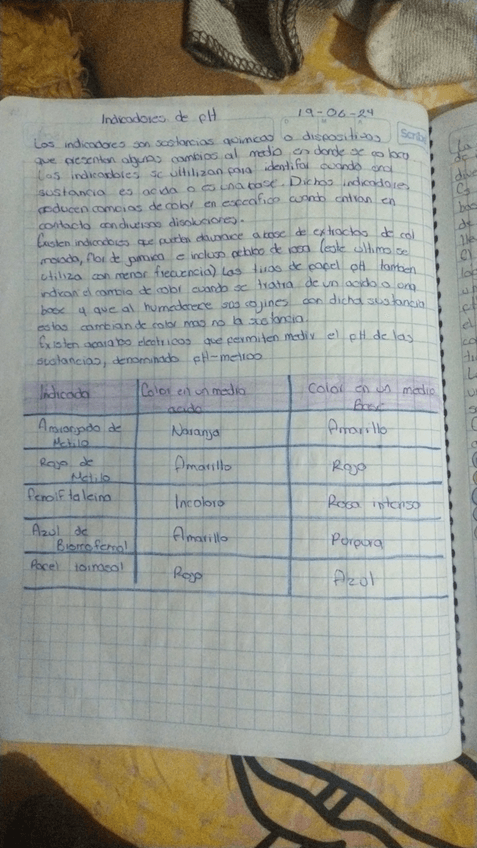 Indicadores de pH 19-06-24
Scribe
Los indicadores son sustancias quimicas o dispositivos
que presenten algunos cambios al medio en donde se
Los indicadores se utilizan para identificar cuando una
sustancia es acida o es una base. Dichos indicadores
producen cambios de color en especifico cuando entran en
contacto con disoluciones.
Existen indicadores que pueden a base de extractos de col
morada, flor de jamaica e incluso petalos de rosa (este ultimo se
utiliza con menor frecuencia) Las tiras de papel pH tambien
indican el cambio de color cuando se tratra de un acido o una
base y que al humedecerse con dicha sustancia
estas cambian de color mas no la sustancia.
Existen electricos que permiten medir el pH de las
sustancias, denominado pH-metros
Indicado Color en un medio acido Color en un medio Base
Anaranjado de Metilo Naranja Amarillo
Rojo de Metilo Amarillo Rojo
Fenolftaleina Incoloro Rosa intenso
Azul de Bromofenol Amarillo Purpura
Papel Rojo Azul